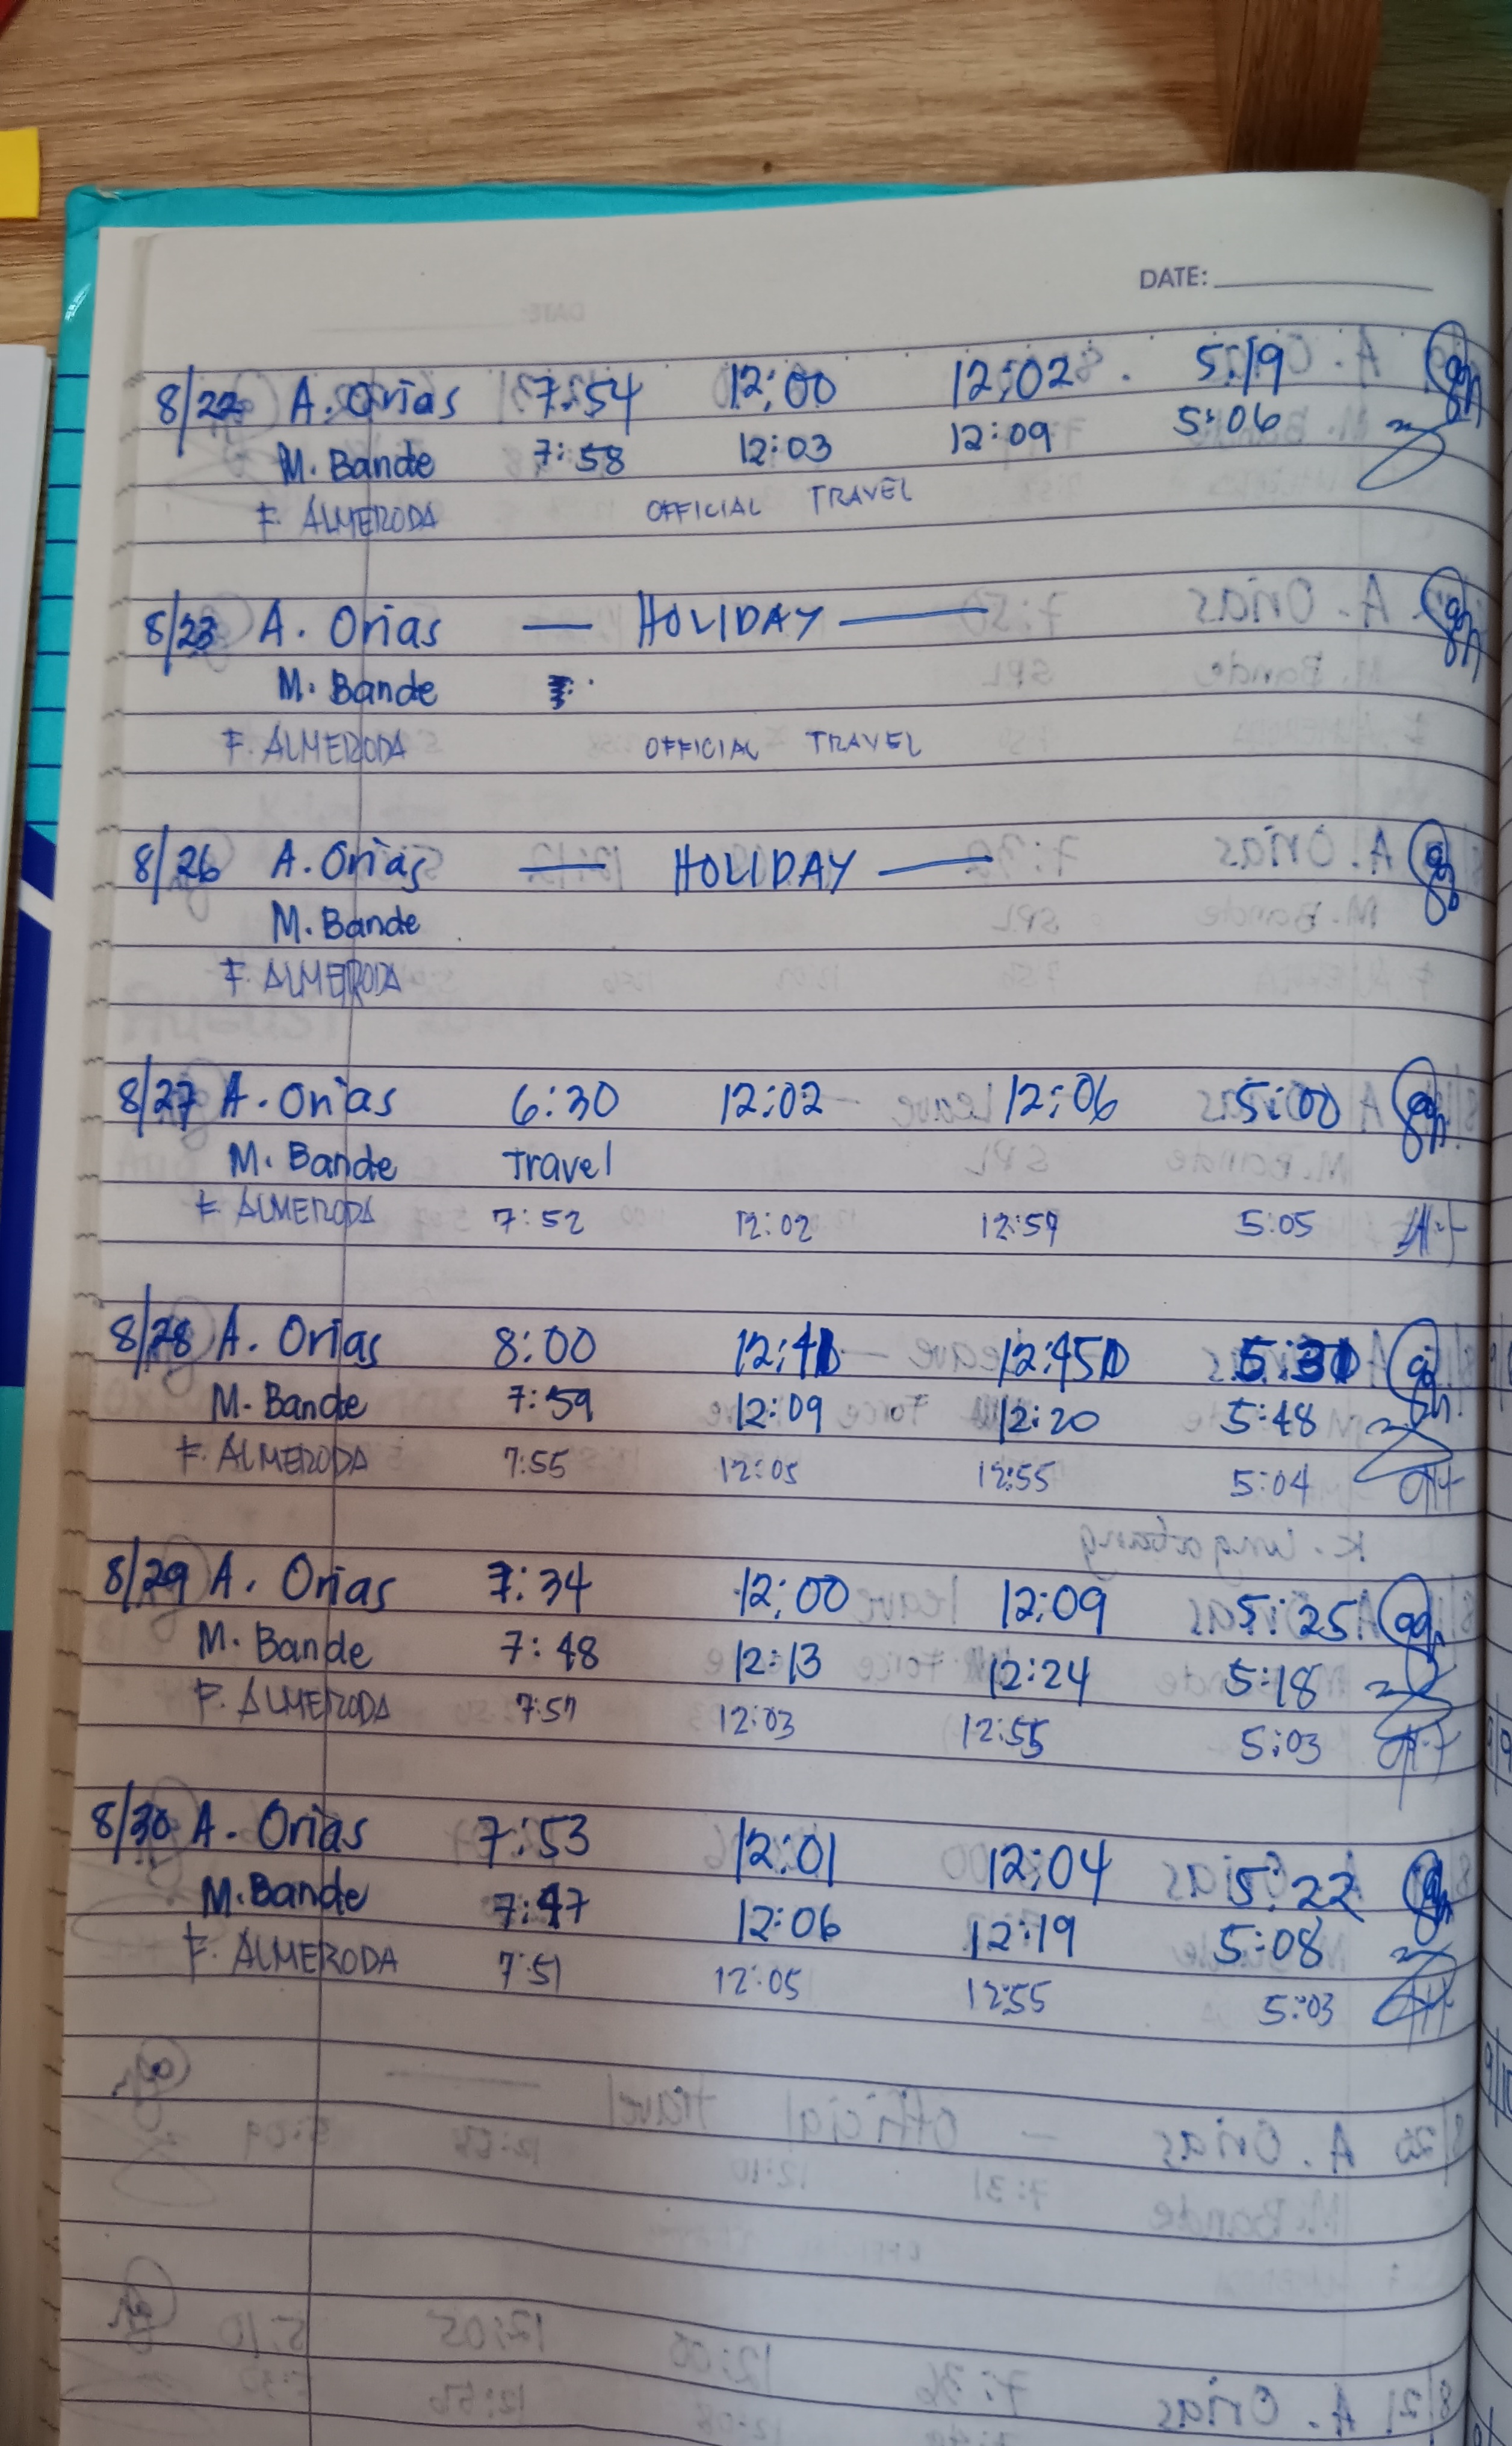 DATE:
8/22 A. Orias 7:54 12:00 12:02 5:19
M. Bande 7:58 12:03 12:09 5:06
F. ALMERODA OFFICIAL TRAVEL
8/23 A. Orias — HOLIDAY —
M. Bande
F. ALMERODA OFFICIAL TRAVEL
8/26 A. Orias — HOLIDAY —
M. Bande
F. ALMERODA
8/27 A. Orias 6:30 12:02 12:06 5:00
M. Bande Travel
F. ALMERODA 7:52 12:02 12:59 5:05
8/28 A. Orias 8:00
M. Bande 7:59 12:09 12:20 5:48
F. ALMERODA 7:55 12:05 12:55 5:04
8/29 A. Orias 7:34 12:00 12:09 5:25
M. Bande 7:48 12:13 12:24 5:18
F. ALMERODA 12:03 12:55 5:03
8/30 A. Orias 7:53 12:01 12:04 5:22
M. Bande 7:47 12:06 12:19 5:08
F. ALMERODA 7:51 12:05 12:55 5:03